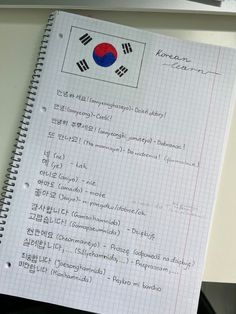 Korean
learn
안녕하세요! (annyeonghaseyo) - Dzień dobry!
안녕! (annyeong) - Cześć!
안녕히 주무세요! (annyeonghi jumuseyo) - Dobranoc!
또 만나요! (tto mannayo) - Do widzenia!
네 (ne)
예 (ye) - tak
아니요 (aniyo) - nie
아마도 (amado) - może
좋아요 (joayo) - w porządku/dobrze/ok
감사합니다 (Gamsahamnida)
고맙습니다! (Gomapseumnida) - Dziękuję
천만에요 (Cheonmaneyo) - Proszę (odpowiedź na dziękuję)
실례합니다;... (Sillyehamnida;...) - Przepraszam;...
죄송합니다 (Joesonghamnida)
미안합니다 (Mianhamnida) - Przykro mi bardzo